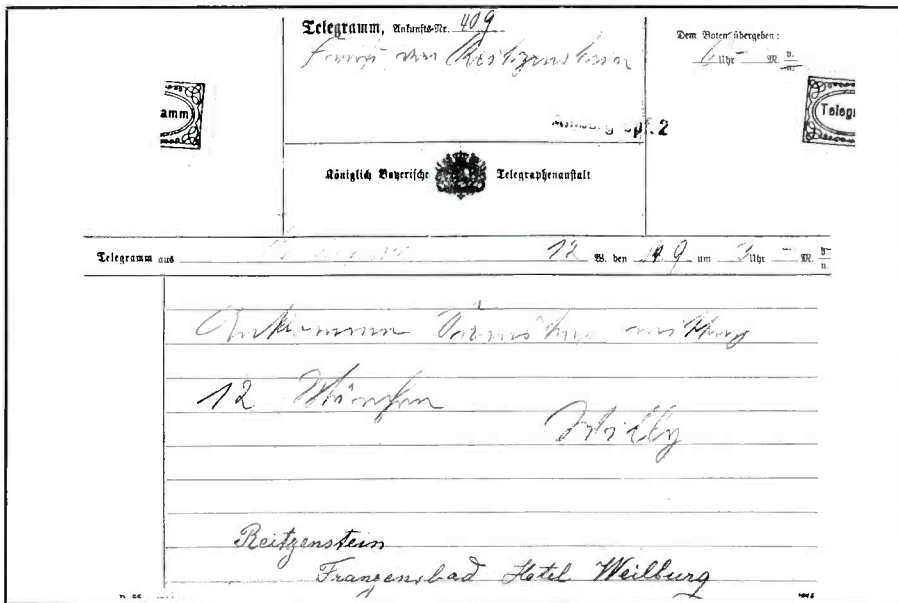 Telegramm, Ankunfts-Nr. 409
von Reitzenstein
Dem Boten übergeben:
6 Uhr M. v./n.
amm
Telegr
pf. 2
Königlich Bayerische Telegraphenanstalt
Telegramm aus 12 W. den 14. 9 um 3 Uhr M. v./n.
Ankomme Dienstag mittag
12 München
Willy
Reitzenstein
Franzensbad Hotel Weilburg